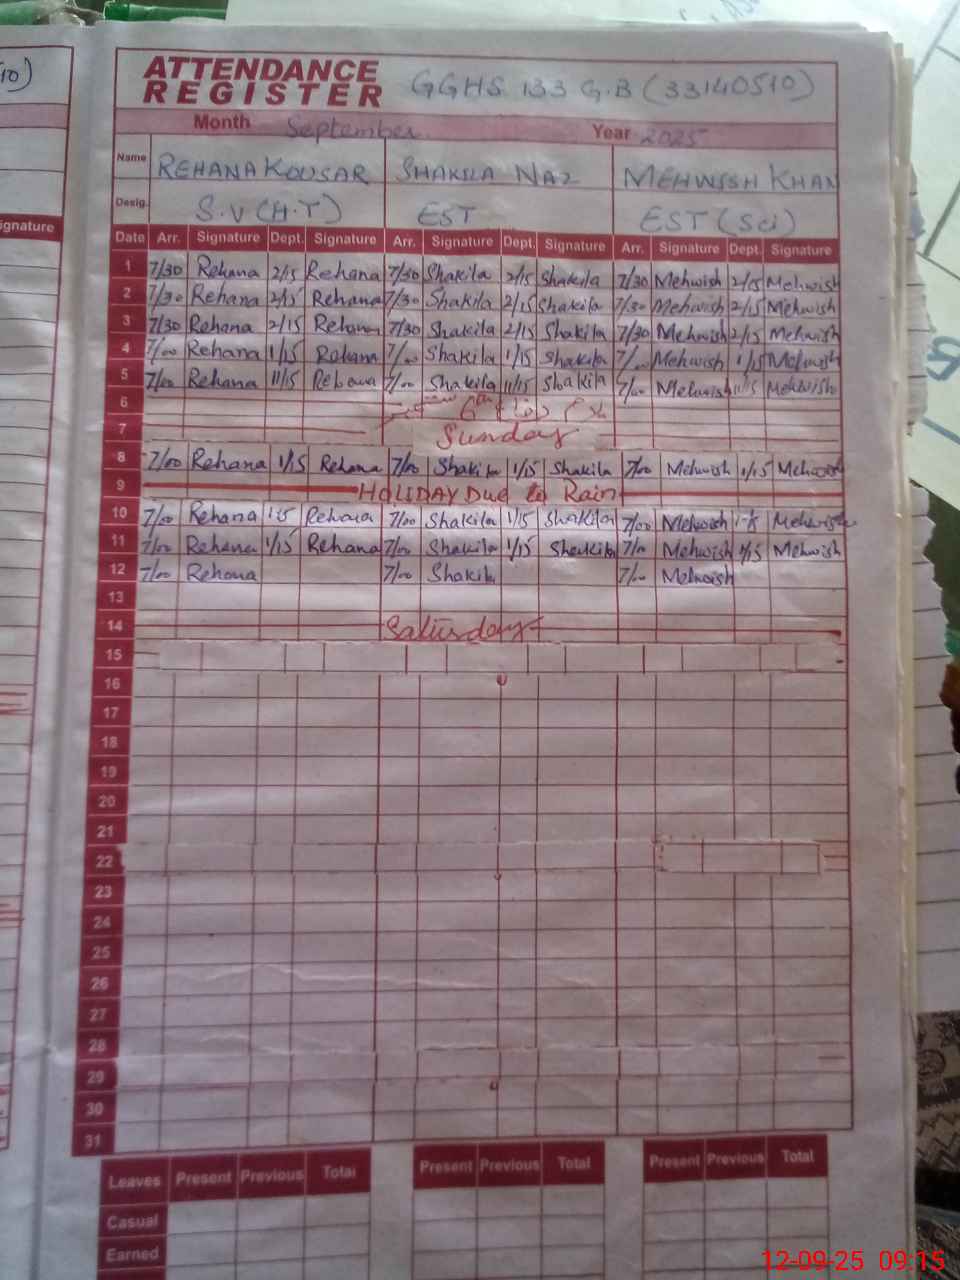 ATTENDANCE REGISTER GGHS 133 G.B (33140510)
Month September Year 2025
Name REHANA KOUSAR SHAKILA NAZ MEHWISH KHAN
Desig. S.V (H.T) EST EST (Sci)
Date Arr. Signature Dept. Signature Arr. Signature Dept. Signature Arr. Signature Dept. Signature
1 7/30 Rehana 2/15 Rehana 7/30 Shakila 2/15 Shakila 7/30 Mehwish 2/15 Mehwish
2 7/30 Rehana 2/15 Rehana 7/30 Shakila 2/15 Shakila 7/30 Mehwish 2/15 Mehwish
3 7/30 Rehana 2/15 Rehana 7/30 Shakila 2/15 Shakila 7/30 Mehwish 2/15 Mehwish
4 7/00 Rehana 1/15 Rehana 7/00 Shakila 1/15 Shakila 7/00 Mehwish 1/15 Mehwish
5 7/00 Rehana 11/15 Rehana 7/00 Shakila 11/15 Shakila 7/00 Mehwish 11/15 Mehwish
6 6th
7 Sunday
8 7/00 Rehana 1/15 Rehana 7/00 Shakila 1/15 Shakila 7/00 Mehwish 1/15 Mehwish
9 HOLIDAY Due to Rain
10 7/00 Rehana 1-15 Rehana 7/00 Shakila 1/15 Shakila 7/00 Mehwish Mehwish
11 7/00 Rehana 1/15 Rehana 7/00 Shakila 1/15 Shakila 7/00 Mehwish 1/15 Mehwish
12 7/00 Rehana 7/00 Shakila 7/00 Mehwish
13
14 Saturday
15
16
17
18
19
20
21
22
23
24
25
26
27
28
29
30
31
Leaves Present Previous Total Present Previous Total Present Previous Total
Casual
Earned
12-09-25 09:15